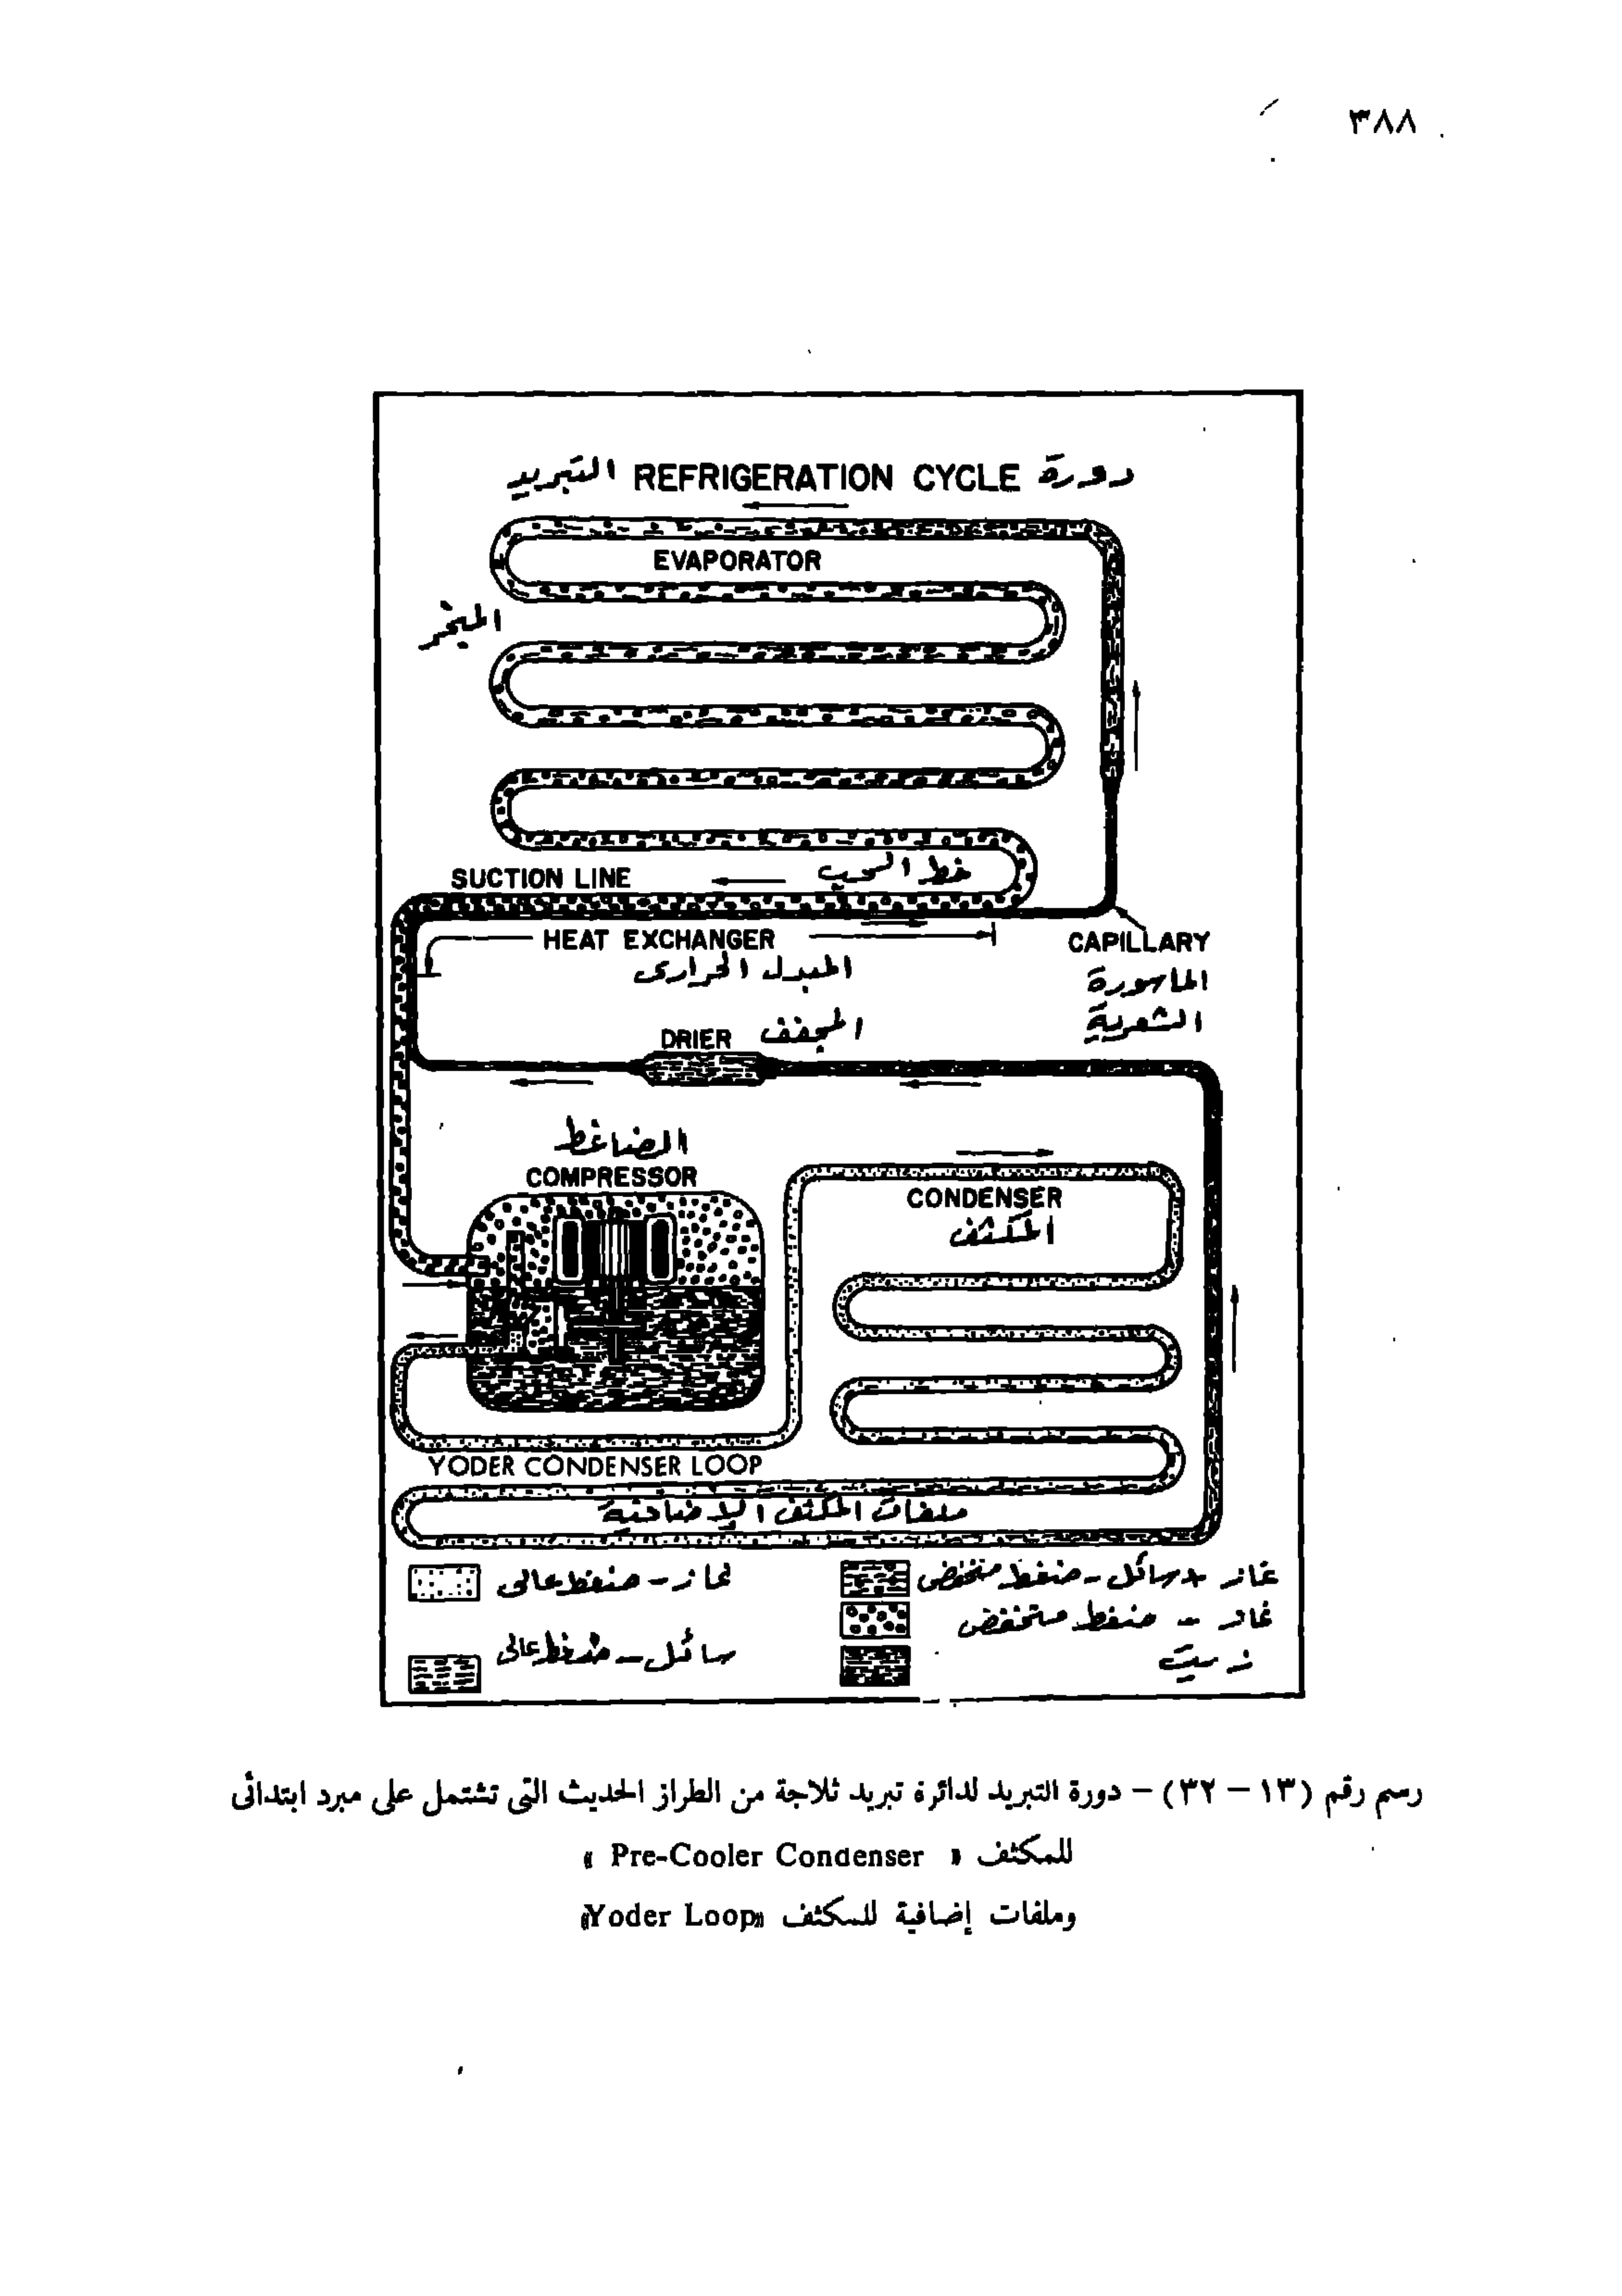 ٣٨٨
دورة REFRIGERATION CYCLE التبريد
EVAPORATOR
المبخر
SUCTION LINE خط السحب
HEAT EXCHANGER
المبدل الحرارى
CAPILLARY
الماسورة
الشعرية
DRIER المجفف
الضاغط
COMPRESSOR
CONDENSER
المكثف
YODER CONDENSER LOOP
ملفات المكثف الإضافية
غاز + سائل - ضغط منخفض
غاز - ضغط عالى
غاز - ضغط منخفض
سائل - ضغط عالى
زيت
رسم رقم (١٣ – ٣٢) – دورة التبريد لدائرة تبريد ثلاجة من الطراز الحديث التى تشتمل على مبرد ابتدائى
للمكثف « Pre-Cooler Condenser »
وملفات إضافية للمكثف «Yoder Loop»